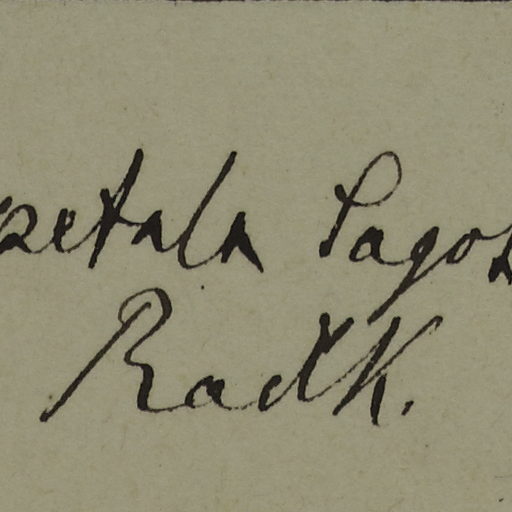 petala Lagos
Radlk.